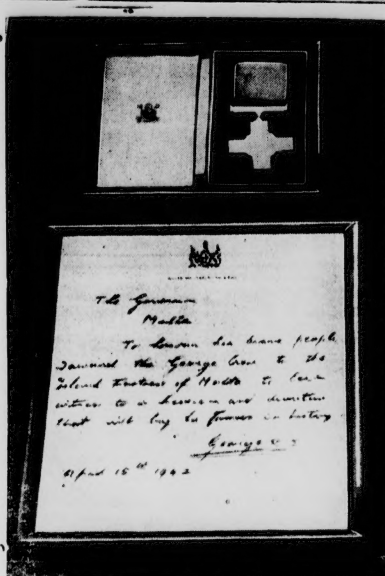 The Governor
Malta
To honour her brave people
I award the George Cross to the
Island Fortress of Malta to bear
witness to a heroism and devotion
that will long be famous in history.
George R.I.
April 15th 1942